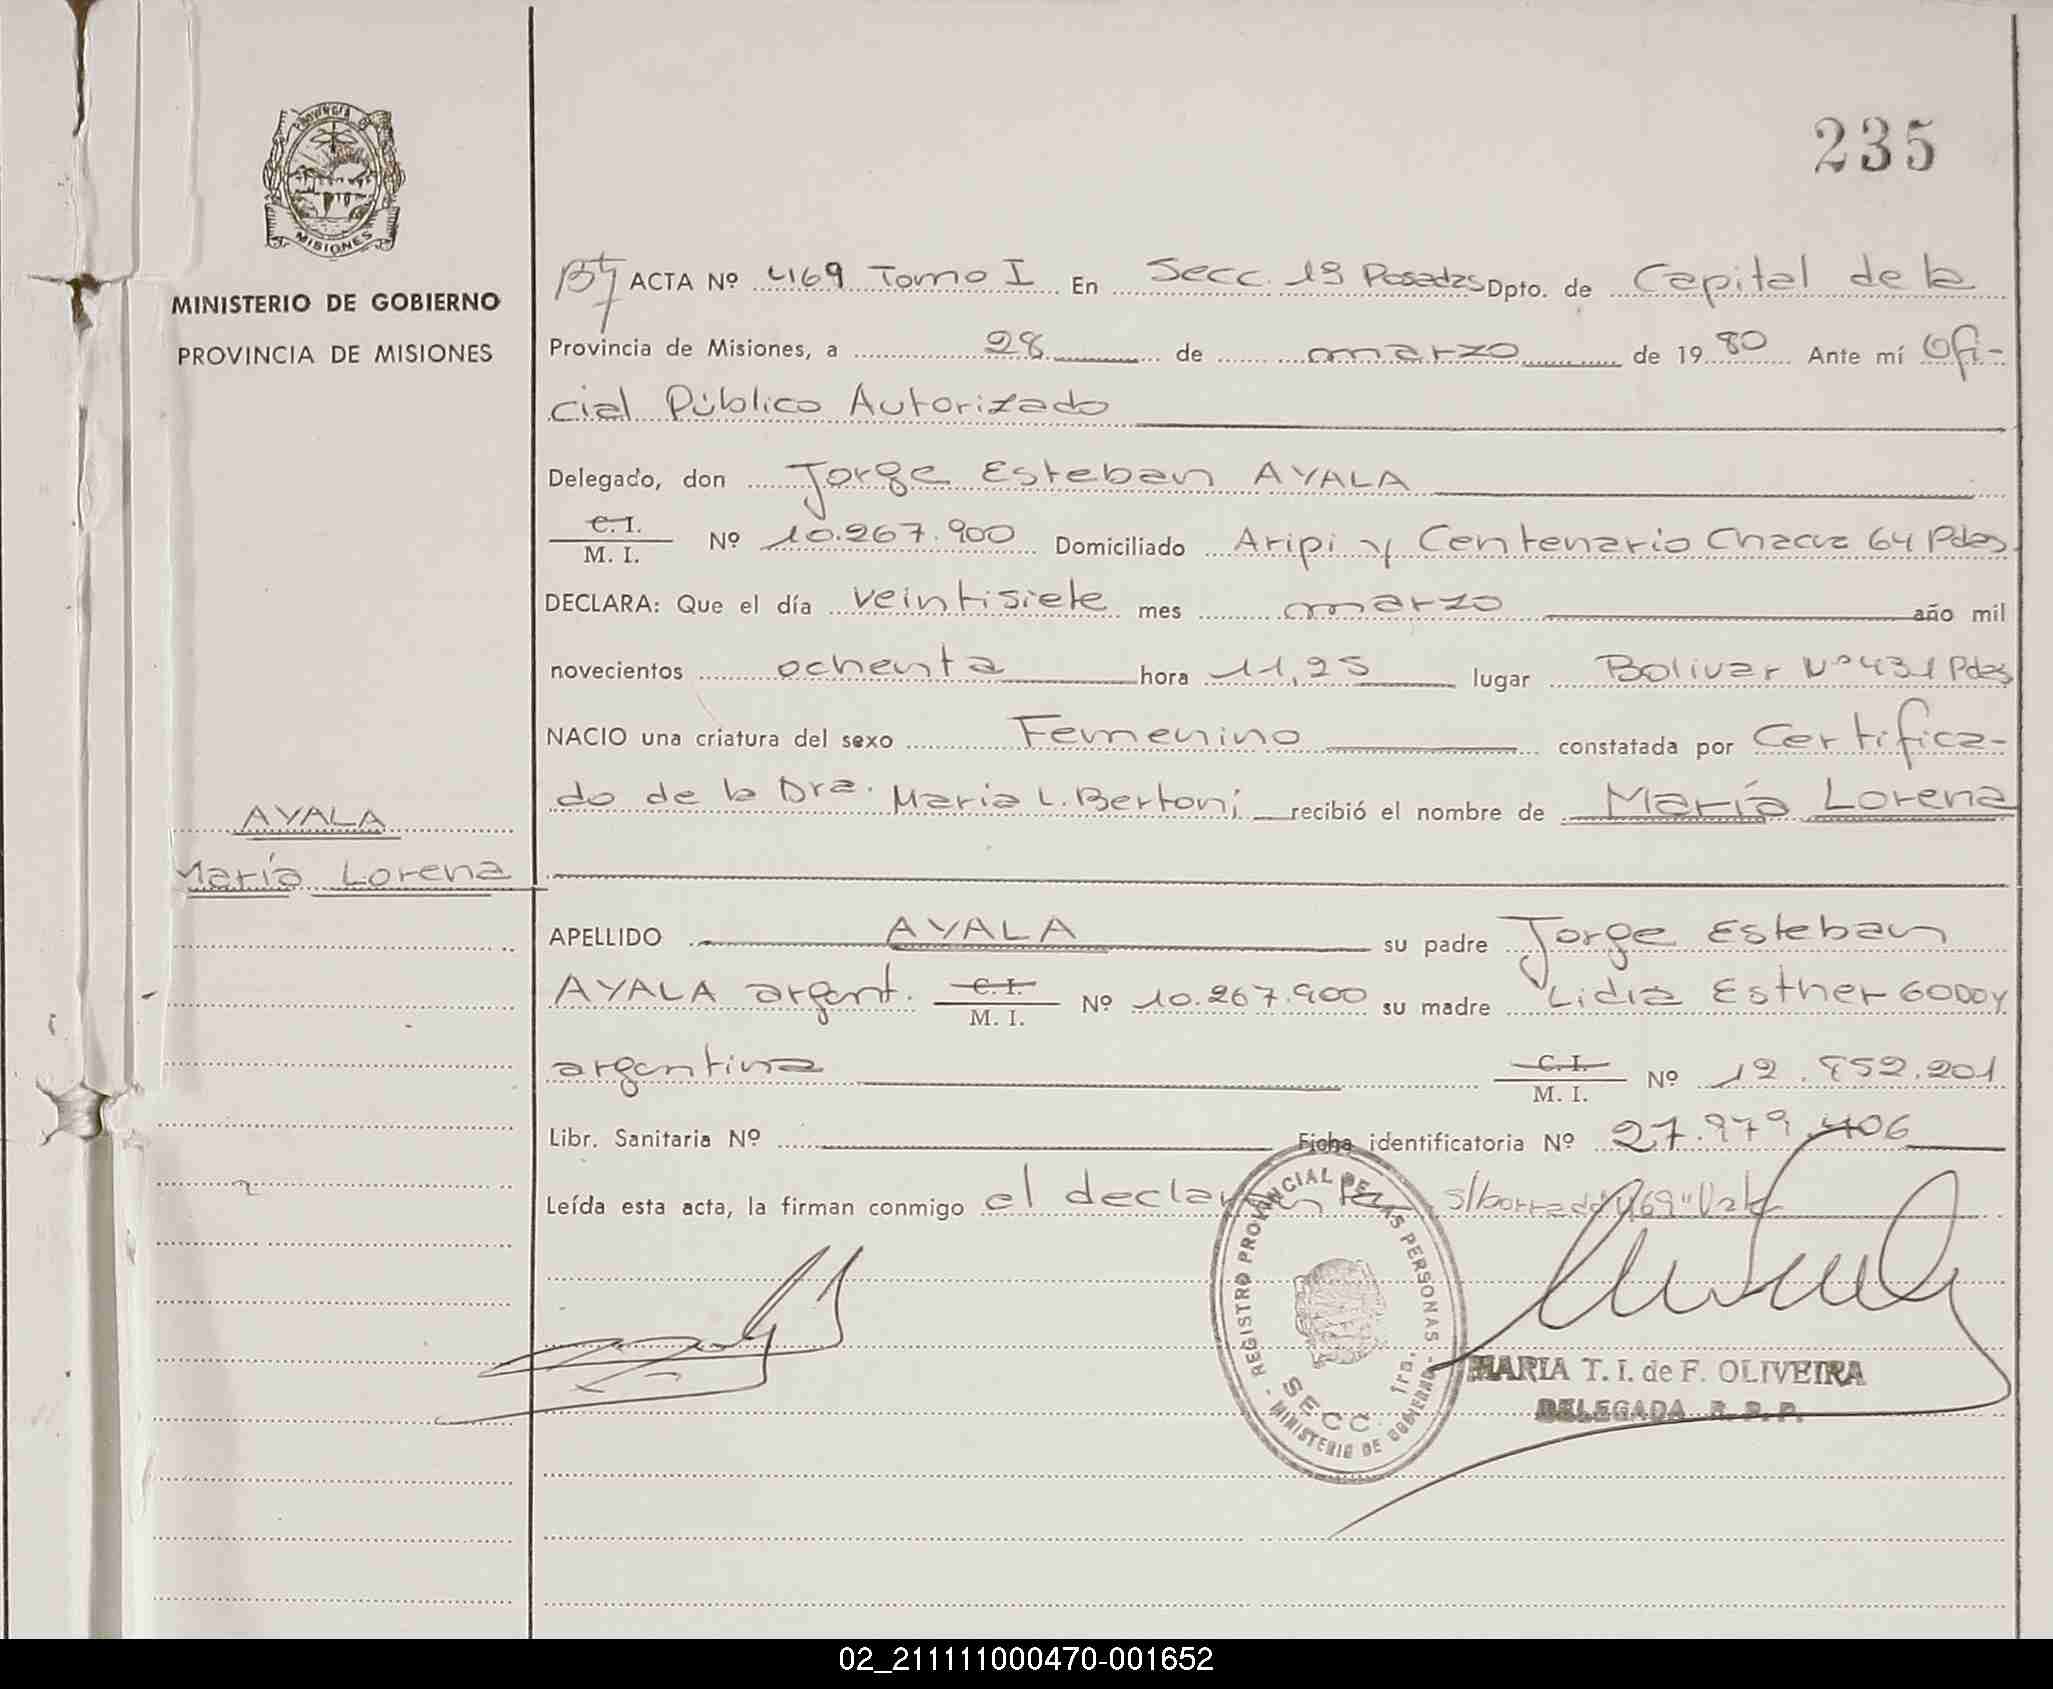 PROVINCIA DE
MISIONES
MINISTERIO DE GOBIERNO
PROVINCIA DE MISIONES
235
ACTA Nº 469 Tomo I En Secc. 1º Posadas Dpto. de Capital de la
Provincia de Misiones, a 28 de marzo de 1980 Ante mí Ofi-
cial Público Autorizado
Delegado, don Jorge Esteban AYALA
C.I.
M. I. Nº 10.267.900 Domiciliado Aripi y Centenario Chacra 64 Pdas
DECLARA: Que el día veintisiete mes marzo año mil
novecientos ochenta hora 11,25 lugar Bolivar Nº 431 Pdas
NACIO una criatura del sexo Femenino constatada por Certifica-
do de la Dra. Maria L. Bertoni recibió el nombre de María Lorena
AYALA
María Lorena
APELLIDO AYALA su padre Jorge Esteban
AYALA argent. C.I. M. I. Nº 10.267.900 su madre Lidia Esther GODOY
argentina C.I. M. I. Nº 12.852.201
Libr. Sanitaria Nº Ficha identificatoria Nº 27.979.406
Leída esta acta, la firman conmigo el declarante s/borrado "469" Vale
REGISTRO PROVINCIAL DE LAS PERSONAS
MINISTERIO DE GOBIERNO
SECC. 1ra.
MARIA T. I. de F. OLIVEIRA
DELEGADA R. P. P.
02_211111000470-001652